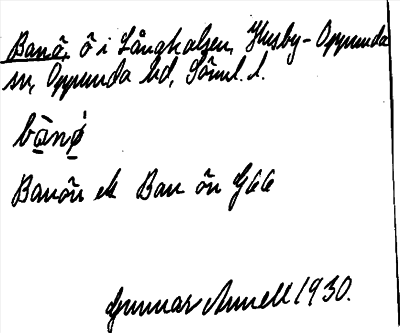 Banö, ö i Långhalsen, Husby-Oppunda
sn, Oppunda hd, Söml. l.
bànǿ
Banön ek Ban ön G66
Gunnar Annell 1930.